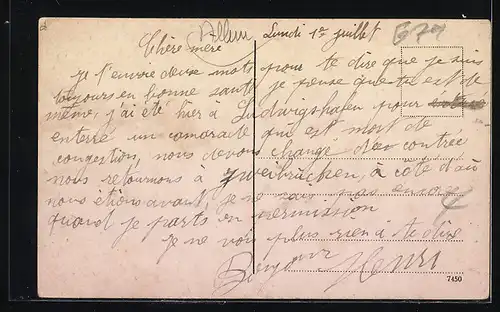 Allem Lundi 1er juillet 679
Chère mère
Je t'envoie deux mots pour te dire que je suis
toujours en bonne santé je pense que tu est de
même, j'ai été hier à Ludwigshafen pour
enterré un camarade que est mort de
congestion, nous devons change d'en contrée
nous retournons a Zweibrücken, à côté d'où
nous étions avant, je ne sais pas encore
quand je parts en permission
Je ne vois plus rien a te dire
Bonjour Henri
7450